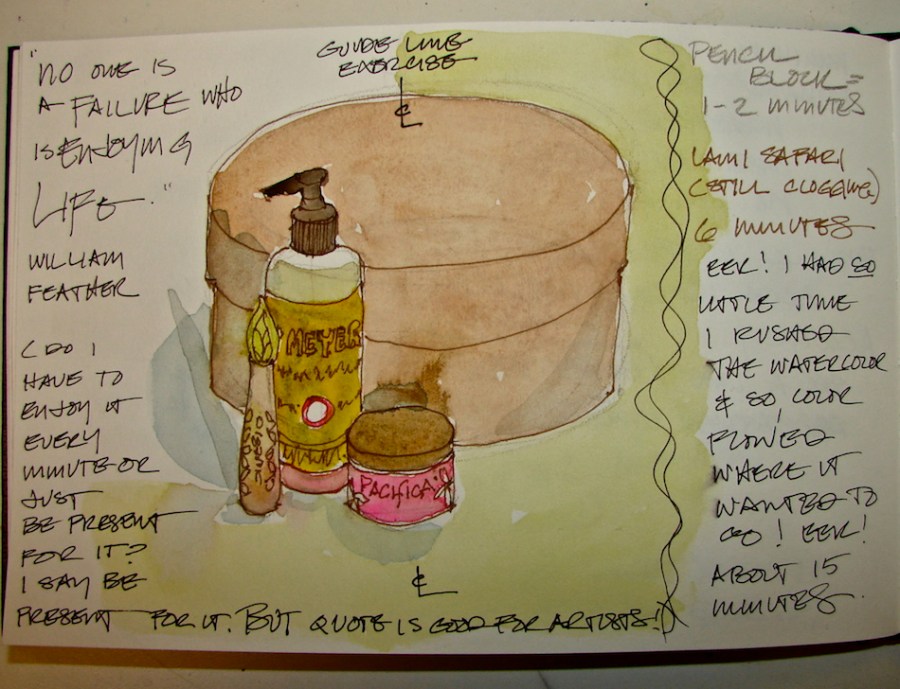 "NO ONE IS
A FAILURE WHO
IS ENJOYING
LIFE."
WILLIAM
FEATHER
( DO I
HAVE TO
ENJOY IT
EVERY
MINUTE OR
JUST
BE PRESENT
FOR IT?
I SAY BE
PRESENT FOR IT. BUT QUOTE IS GOOD FOR ARTISTS!)
GUIDE LINE
EXERCISE
MEYER
PACIFICA
PENCIL
BLOCK =
1-2 MINUTES
LAMI SAFARI
(STILL CLOGGING)
6 MINUTES
EEK! I HAD SO
LITTLE TIME
I RUSHED
THE WATERCOLOR
& SO, COLOR
FLOWED
WHERE IT
WANTED TO
GO! EEK!
ABOUT 15
MINUTES.